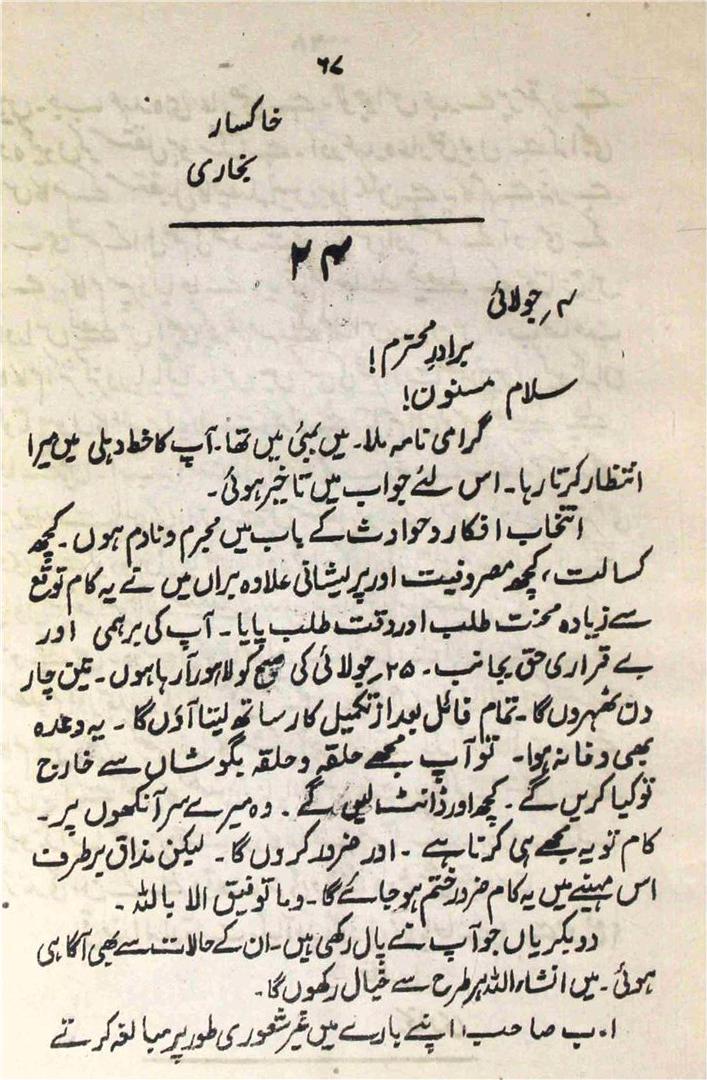 ۶۷
خاکسار
بخاری
۲۴
۴؍ جولائی
برادرِ محترم!
سلام مسنون!
گرامی نامہ ملا۔ میں بمبئی میں تھا۔ آپ کا خط دہلی میں میرا
انتظار کرتا رہا۔ اس لئے جواب میں تاخیر ہوئی۔
انتخاب افکار و حوادث کے باب میں مجرم و نادم ہوں۔ کچھ
کسالت، کچھ مصروفیت اور پریشانی علاوہ براں میں نے یہ کام توقع
سے زیادہ محنت طلب اور دقت طلب پایا۔ آپ کی برہمی اور
بے قراری حق بجانب۔ ۲۵؍ جولائی کی صبح کو لاہور آرہا ہوں۔ تین چار
دن ٹھہروں گا۔ تمام فائل بعد از تکمیل کار ساتھ لیتا آؤں گا۔ یہ وعدہ
بھی وفا نہ ہوا۔ تو آپ مجھے حلقہ و حلقہ بگوشاں سے خارج
تو کیا کریں گے۔ کچھ اور ڈانٹ لیں گے۔ وہ میرے سر آنکھوں پر۔
کام تو یہ مجھے ہی کرنا ہے۔ اور ضرور کروں گا۔ لیکن مذاق برطرف
اس مہینے میں یہ کام ضرور ختم ہو جائے گا۔ وما توفیق الا باللہ۔
دو بکریاں جو آپ نے پال رکھی ہیں۔ ان کے حالات سے بھی آگاہی
ہوئی۔ میں انشاء اللہ ہر طرح سے خیال رکھوں گا۔
ا۔ ب صاحب اپنے بارے میں غیر شعوری طور پر مبالغہ کرتے